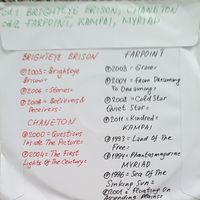 cd1 BRIGHTEYE BRISON, CHANETON
cd2 FARPOINT, KAMPAI, MYRIAD
BRIGHTEYE BRISON
℗2003=Brighteye
Brison=
℗2006=Stories=
℗2008=Believers &
Deceivers=
CHANETON
℗2000=Questions
Inside The Pictures=
℗2004=The First
Lights Of The Century=
FARPOINT
℗2003=Grace=
℗2004=From Dreaming
To Dreaming=
℗2008=Cold Star
Quiet Star=
℗2011=Kindred=
KAMPAI
℗1993=Land Of The
Free=
℗1994=Phantasmagoria=
MYRIAD
℗1996=Sea Of The
Sinking Sun=
℗2001=Floating On
Ascending Planes=